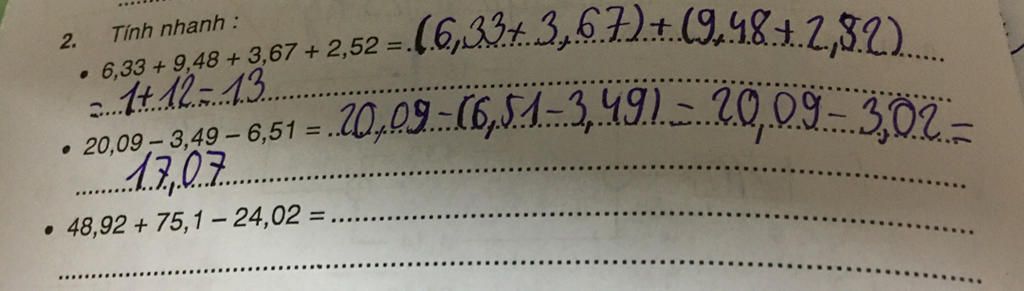 2. Tính nhanh :
• 6,33 + 9,48 + 3,67 + 2,52 = (6,33+3,67)+(9,48+2,52)
= 1+12=13
• 20,09 – 3,49 – 6,51 = 20,09-(6,51-3,49)=20,09-3,02=
17,07
• 48,92 + 75,1 – 24,02 =